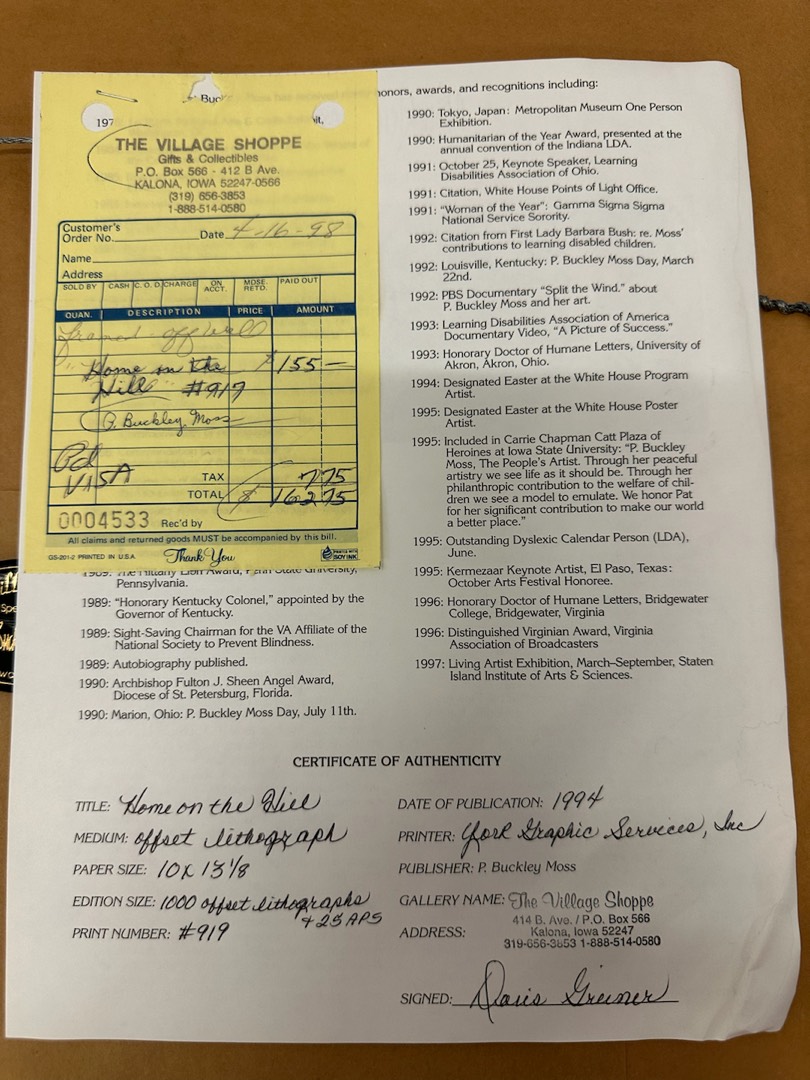 Buc
honors, awards, and recognitions including:
197
it,
THE VILLAGE SHOPPE
Gifts & Collectibles
P.O. Box 566 - 412 B Ave.
KALONA, IOWA 52247-0566
(319) 656-3853
1-888-514-0580
Customer's
Order No. Date 4-16-98
Name
Address
SOLD BY CASH C.O.D. CHARGE ON ACCT. MDSE. RETD. PAID OUT
QUAN. DESCRIPTION PRICE AMOUNT
framed off wall
"Home on the $155—
Hill" #919
P. Buckley Moss
Pd
VISA
TAX 7.75
TOTAL $162.75
0004533 Rec'd by
All claims and returned goods MUST be accompanied by this bill.
GS-201-2 PRINTED IN U.S.A. Thank You PRINTED WITH SOY INK
1989: The Nittany Lion Award, Penn State University,
Pennsylvania.
1989: "Honorary Kentucky Colonel," appointed by the
Governor of Kentucky.
1989: Sight-Saving Chairman for the VA Affiliate of the
National Society to Prevent Blindness.
1989: Autobiography published.
1990: Archbishop Fulton J. Sheen Angel Award,
Diocese of St. Petersburg, Florida.
1990: Marion, Ohio: P. Buckley Moss Day, July 11th.
1990: Tokyo, Japan: Metropolitan Museum One Person
Exhibition.
1990: Humanitarian of the Year Award, presented at the
annual convention of the Indiana LDA.
1991: October 25, Keynote Speaker, Learning
Disabilities Association of Ohio.
1991: Citation, White House Points of Light Office.
1991: "Woman of the Year": Gamma Sigma Sigma
National Service Sorority.
1992: Citation from First Lady Barbara Bush: re. Moss'
contributions to learning disabled children.
1992: Louisville, Kentucky: P. Buckley Moss Day, March
22nd.
1992: PBS Documentary "Split the Wind." about
P. Buckley Moss and her art.
1993: Learning Disabilities Association of America
Documentary Video, "A Picture of Success."
1993: Honorary Doctor of Humane Letters, University of
Akron, Akron, Ohio.
1994: Designated Easter at the White House Program
Artist.
1995: Designated Easter at the White House Poster
Artist.
1995: Included in Carrie Chapman Catt Plaza of
Heroines at Iowa State University: "P. Buckley
Moss, The People's Artist. Through her peaceful
artistry we see life as it should be. Through her
philanthropic contribution to the welfare of chil-
dren we see a model to emulate. We honor Pat
for her significant contribution to make our world
a better place."
1995: Outstanding Dyslexic Calendar Person (LDA),
June.
1995: Kermezaar Keynote Artist, El Paso, Texas:
October Arts Festival Honoree.
1996: Honorary Doctor of Humane Letters, Bridgewater
College, Bridgewater, Virginia
1996: Distinguished Virginian Award, Virginia
Association of Broadcasters
1997: Living Artist Exhibition, March–September, Staten
Island Institute of Arts & Sciences.
CERTIFICATE OF AUTHENTICITY
TITLE: Home on the Hill
MEDIUM: offset lithograph
PAPER SIZE: 10 x 13 1/8
EDITION SIZE: 1000 offset lithographs
+ 25 APS
PRINT NUMBER: #919
DATE OF PUBLICATION: 1994
PRINTER: York Graphic Services, Inc
PUBLISHER: P. Buckley Moss
GALLERY NAME: The Village Shoppe
414 B. Ave. / P.O. Box 566
ADDRESS: Kalona, Iowa 52247
319-656-3853 1-888-514-0580
SIGNED: Doris Greiner